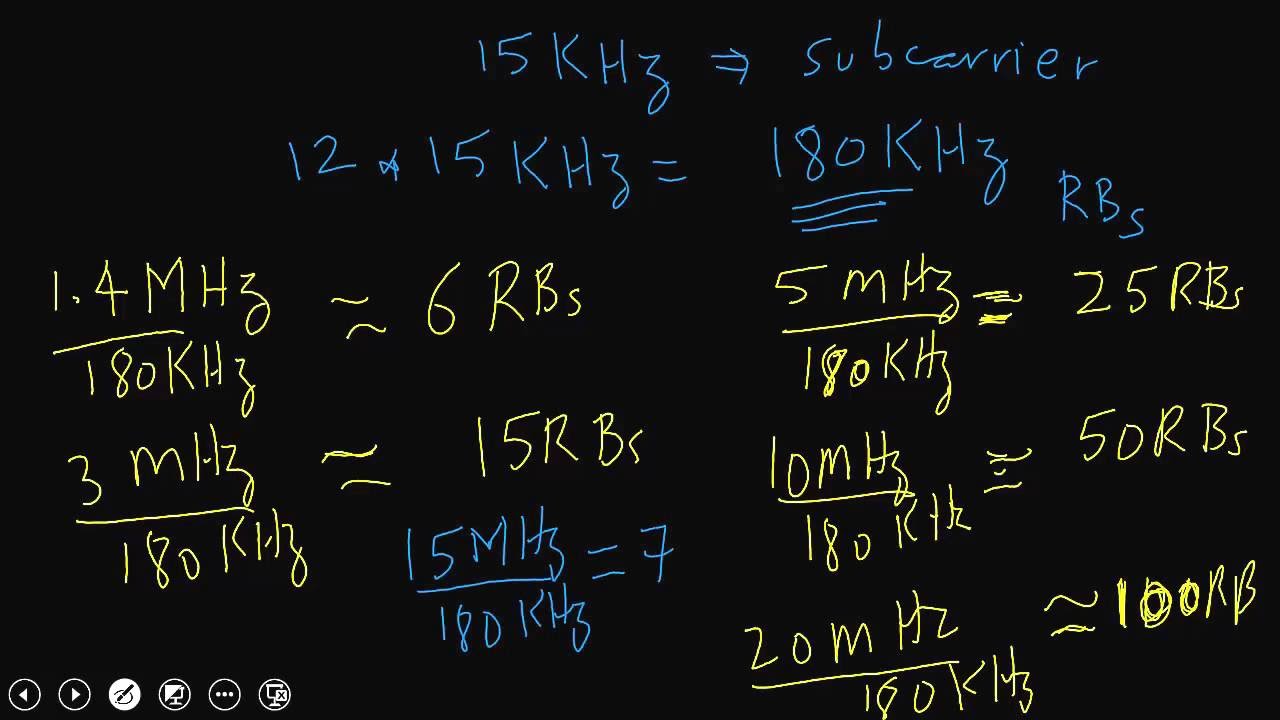 15 KHz ⇒ subcarrier
12 * 15 KHz = 180 KHz
RBs
1.4 MHz / 180 KHz ≈ 6 RBs
3 MHz / 180 KHz ≈ 15 RBs
15 MHz / 180 KHz = 7
5 MHz / 180 KHz = 25 RBs
10 MHz / 180 KHz ≈ 50 RBs
20 MHz / 180 KHz ≈ 100 RB